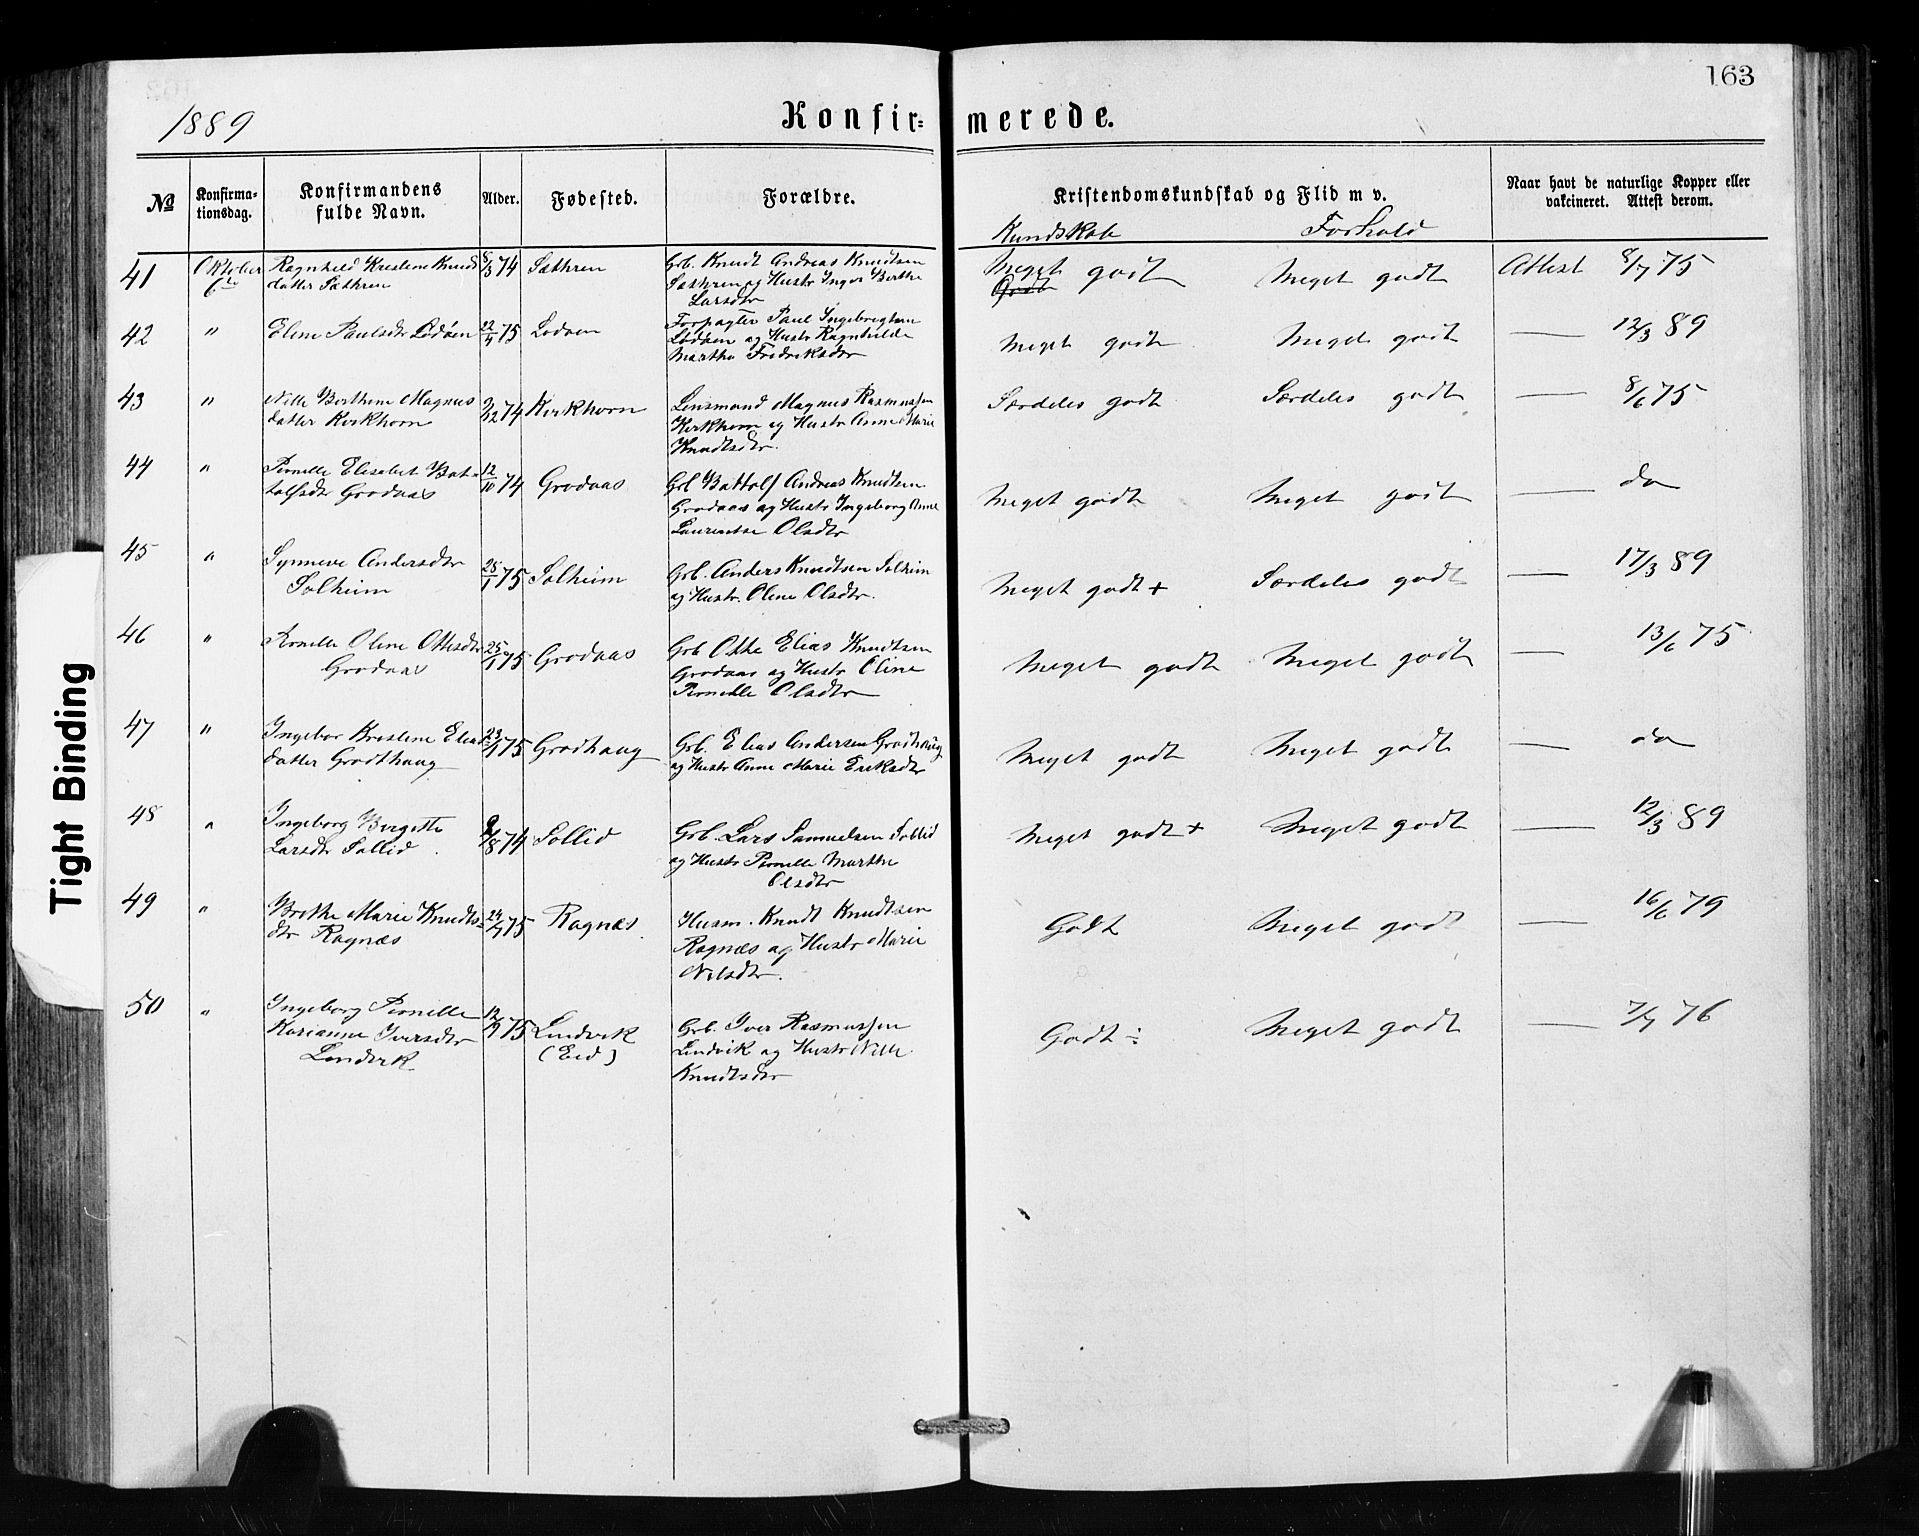 163
1889
Konfir= merede.
№
Konfirma-
tionsdag.
Konfirmandens
fulde Navn.
Alder.
Fødested.
Forældre.
Kristendomskundskab og Flid m v.
Kundskab Forhold
Naar havt de naturlige Kopper eller
vakcineret. Attest derom.
41 Oktober 6te
Ragnhild Kristine Knuds
datter Sæthren
8/3 74 Sæthren
Grb. Knudt Andreas Knudtsen
Sæthren og Hustr Inger Berthe
Larsdtr
Meget godt Meget godt Attest 8/7 75
Godt
42 " Eline Paulsdtr Lødøen 22/4 75 Lødøen
Forpagter Paul Ingebrigtsen
Lødøen og Hustr Ragnhilde
Marthe Fredriksdtr
Meget godt Meget godt — 12/3 89
43 " Nille Berthine Magnus
datter Kirkhorn
9/12 74 Kirkhorn
Lensmand Magnus Rasmussen
Kirkhorn og Hustr Anne Marie
Knudtsdtr.
Særdeles godt Særdeles godt — 8/6 75
44 " Pernille Elisabet Bot-
tolfsdtr Grodaas
12/10 74 Grodaas
Grb Bottolf Andreas Knudtsen
Grodaas og Hustr Ingeborg Anne
Laurentse Olsdtr
Meget godt Meget godt — do
45 " Synneve Andersdtr
Solheim
25/1 75 Solheim
Grb. Anders Knudtsen Solheim
og Hustr. Oline Olsdtr.
Meget godt + Særdeles godt — 17/3 89
46 " Pernille Oline Ottesdtr
Grodaas
25/1 75 Grodaas
Grb Otte Elias Knudtsen
Grodaas og Hustr Oline
Pernille Olsdtr
Meget godt Meget godt — 13/6 75
47 " Ingebor Kristine Elias
datter Grodhaug
23/1 75 Grodhaug
Grb. Elias Andersen Grodhaug
og Hustr Anne Marie Eriksdtr
Meget godt Meget godt — do
48 " Ingeborg Bergitte
Larsdtr Sollid
/8 74 Sollid
Grb. Lars Samuelsen Sollid
og Hustr Pernille Marthe
Olsdtr
Meget godt + Meget godt — 12/3 89
49 " Brethe Marie Knudts=
dtr Ragnæs
24/7 75 Ragnæs
Husm. Knudt Knudtsen
Ragnæs og Hustr Marie
Nilsdtr.
Godt Meget godt — 16/6 79
50 " Ingeborg Pernille
Karianne Iversdtr
Lindvik
75 Lindvik
(Eid)
Grb. Iver Rasmussen
Lindvik og Hustr Nille
Knudtsdtr
Godt ÷ Meget godt — 7/7 76
Tight Binding